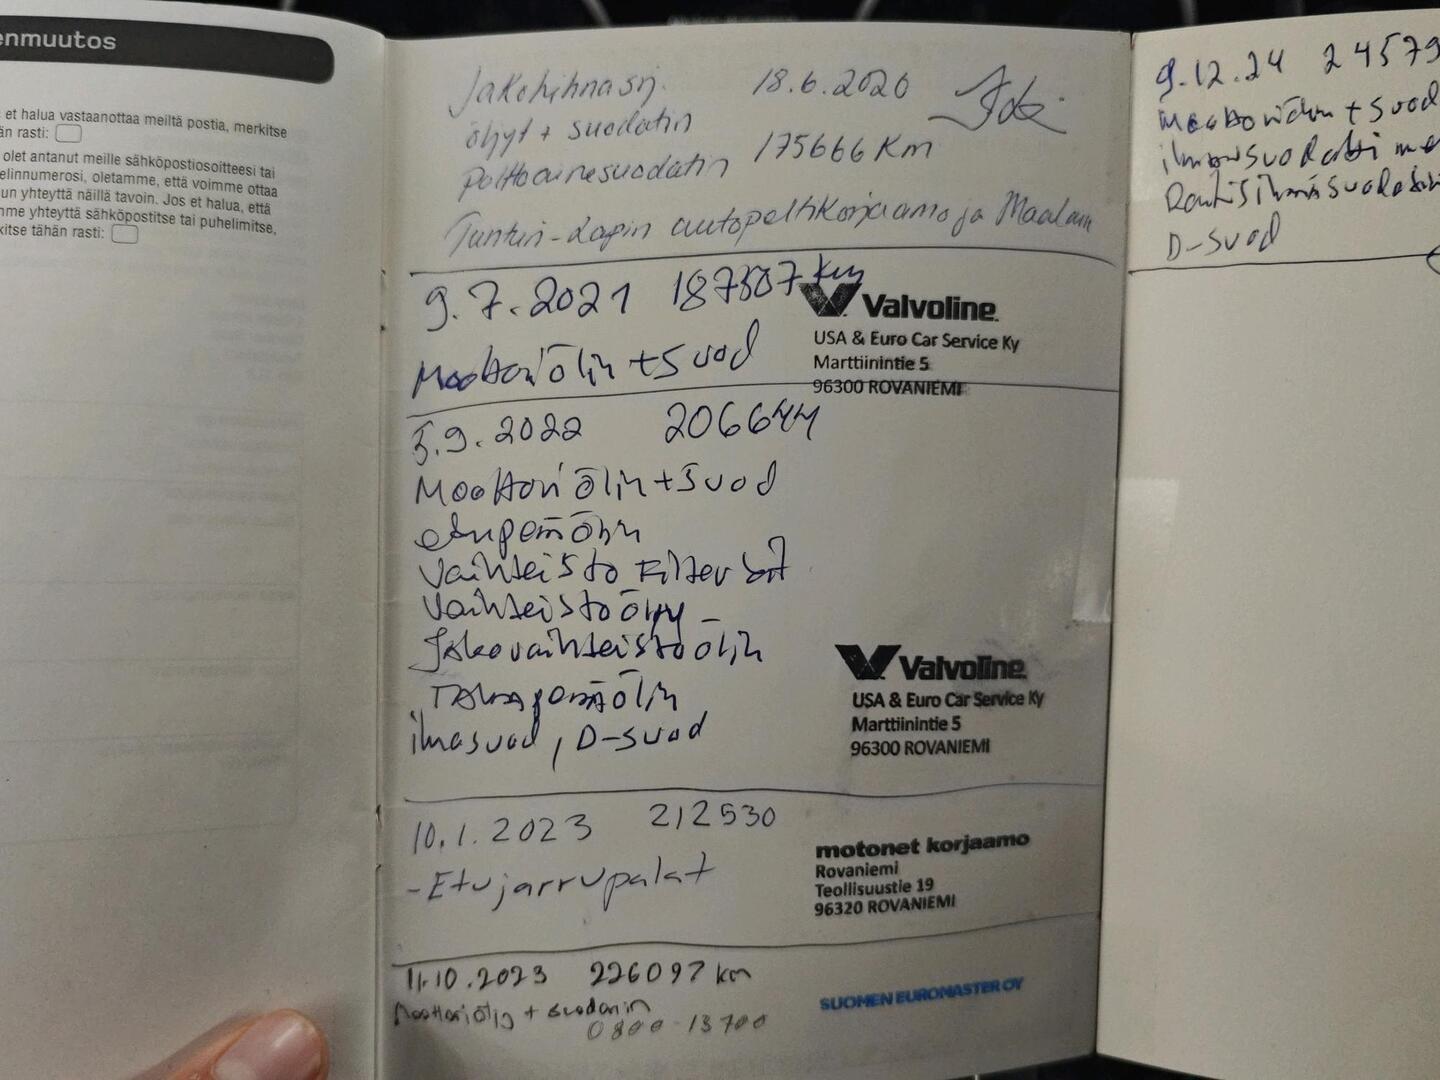 enmuutos
et halua vastaanottaa meiltä postia, merkitse
än rasti:
olet antanut meille sähköpostiosoitteesi tai
elinnumerosi, oletamme, että voimme ottaa
un yhteyttä näillä tavoin. Jos et halua, että
me yhteyttä sähköpostitse tai puhelimitse,
kitse tähän rasti:
Jakohihnasrj. 18.6.2020
öljyt + suodatin
polttoainesuodatin 175666 Km
Tunturi-Lapin autopeltikorjaamo ja Maalaus
9.7.2021 187307 km
Moottoriöljy + suod
Valvoline
USA & Euro Car Service Ky
Marttiinintie 5
96300 ROVANIEMI
5.9.2022 206644
Moottoriöljy + suod
etuperäöljy
Vaihteisto Filter
Vaihteistoöljy
Jakovaihteistoöljy
Takaperäöljy
ilmasuod, D-suod
Valvoline
USA & Euro Car Service Ky
Marttiinintie 5
96300 ROVANIEMI
10.1.2023 212530
- Etujarrupalat
motonet korjaamo
Rovaniemi
Teollisuustie 19
96320 ROVANIEMI
11.10.2023 226097 km
Moottoriöljy + suodatin
0800-13700
SUOMEN EUROMASTER OY
9.12.24 24579
Moottoriöljy + suod
ilmansuodatin
Raitisilmasuodatin
D-suod